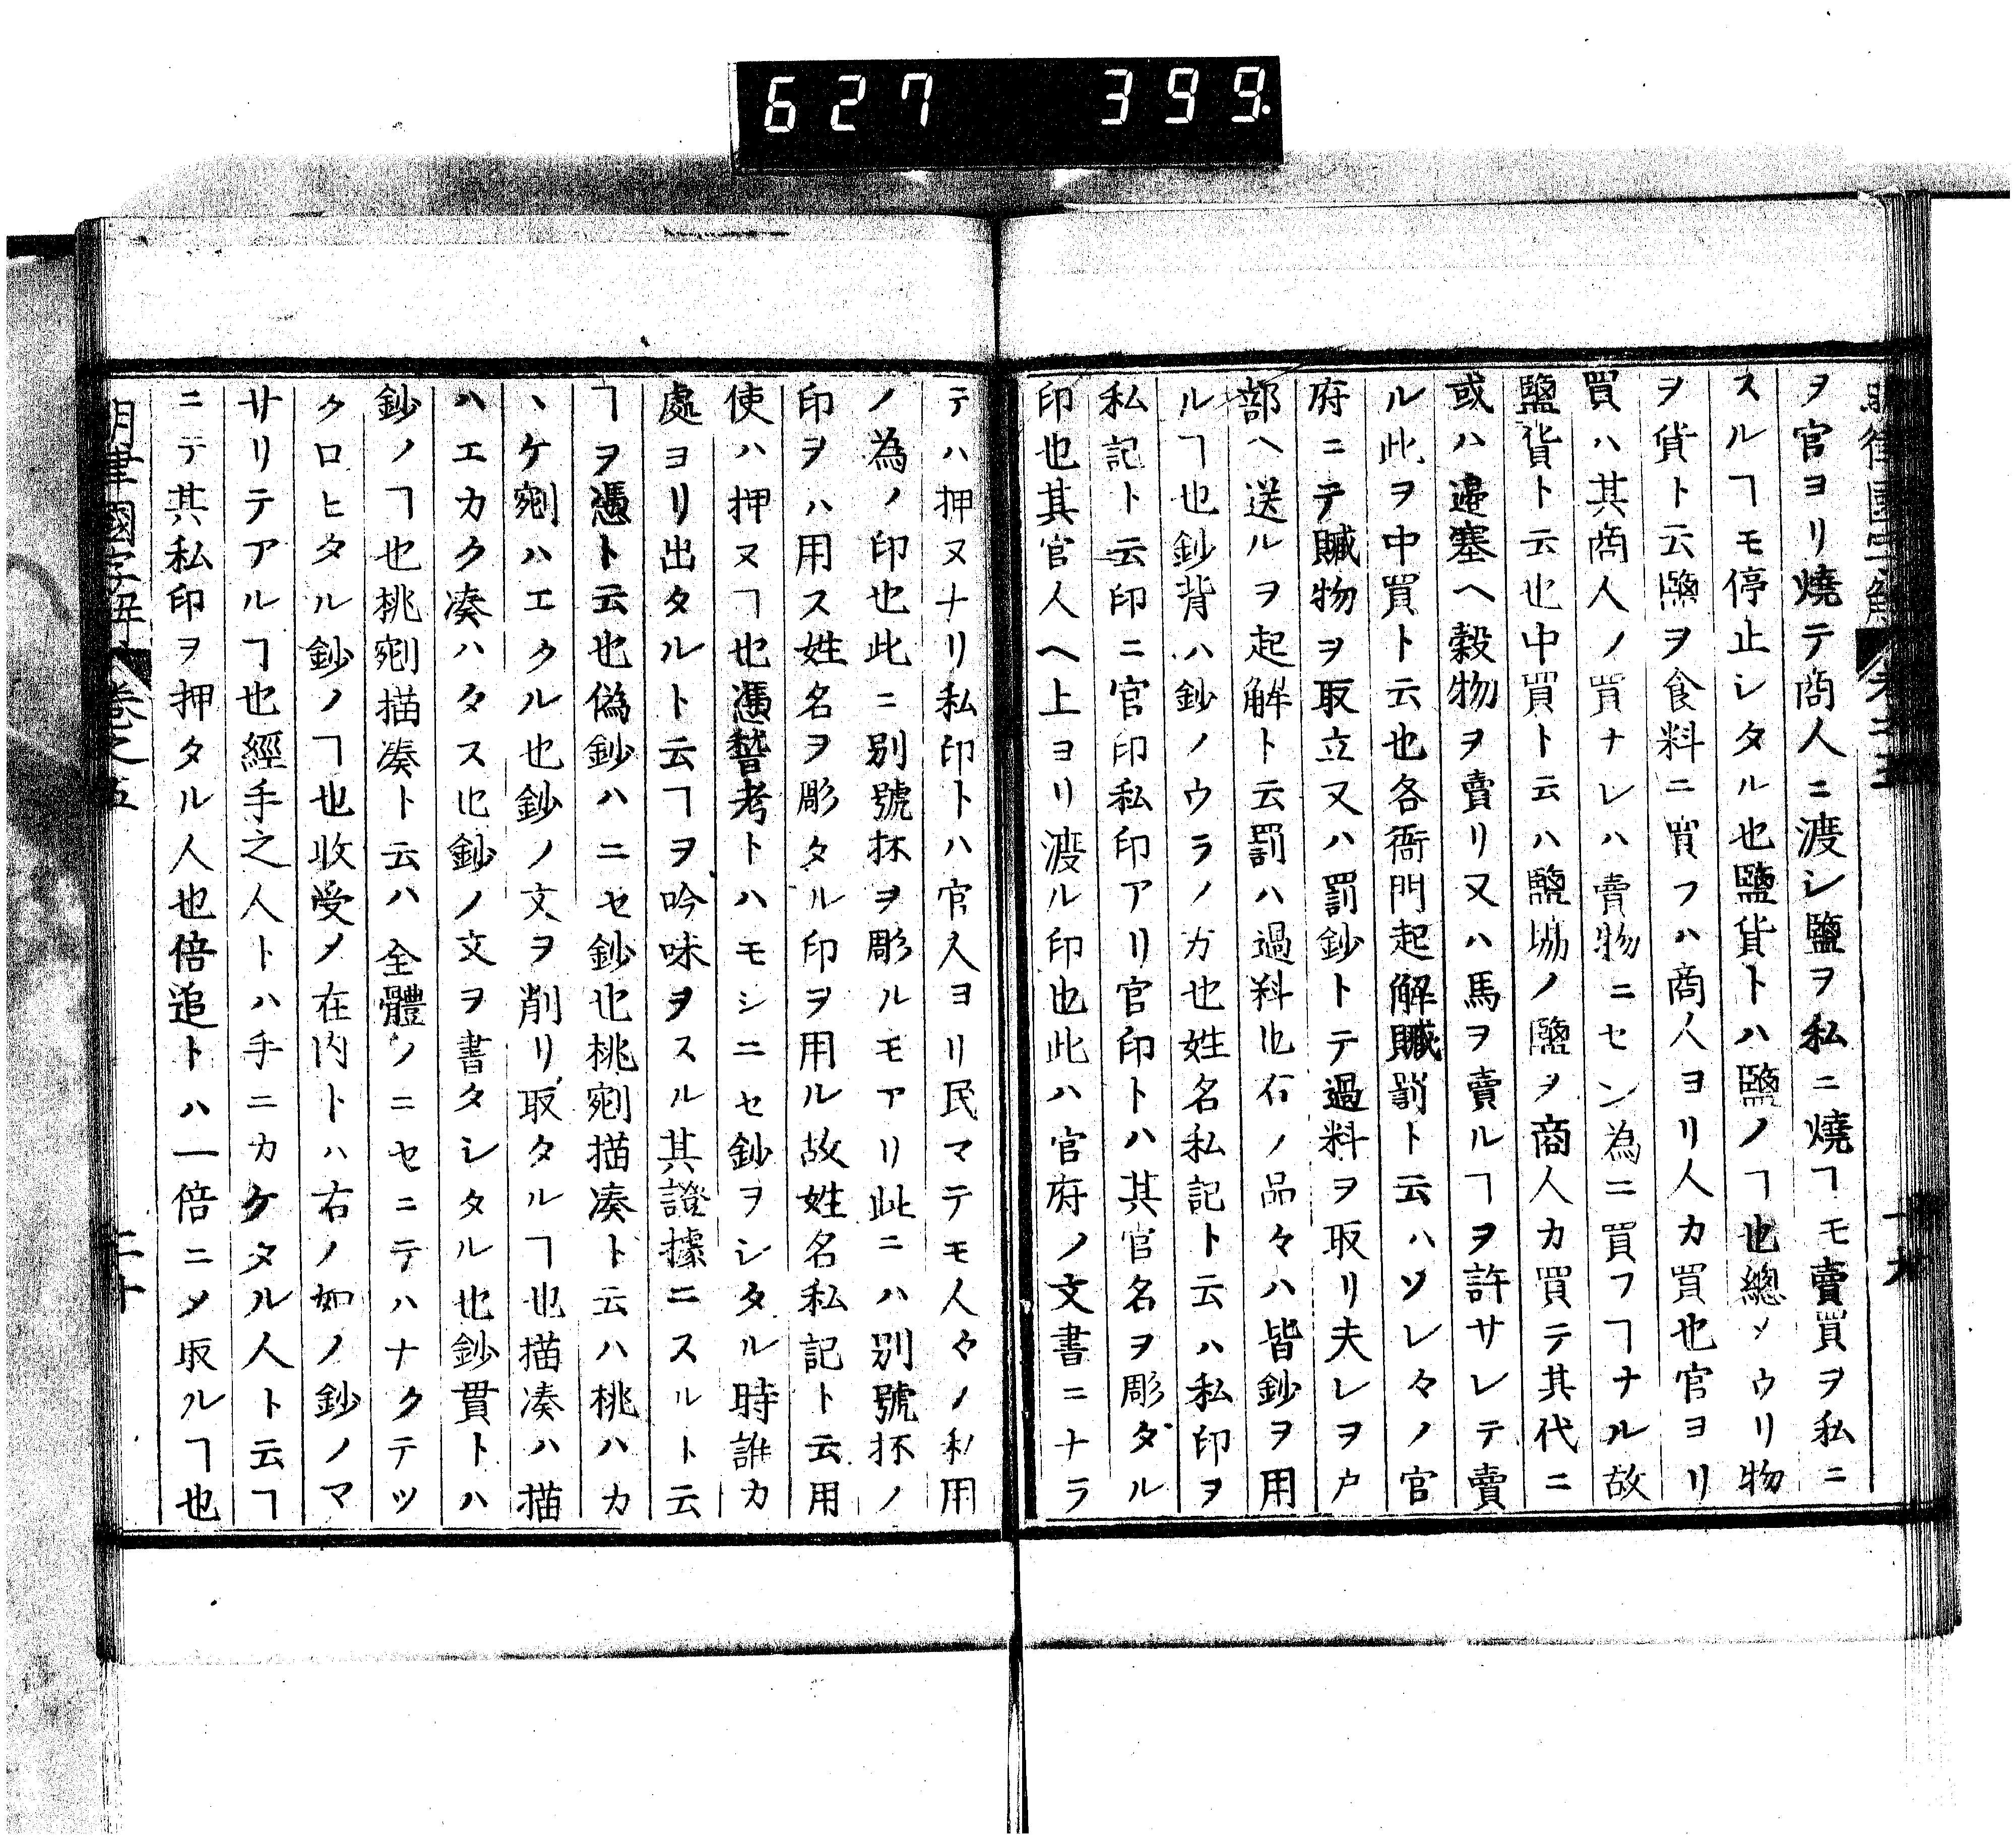 627 399
ヲ官ヨリ燒テ商人ニ渡シ鹽ヲ私ニ燒ヿモ賣買ヲ私ニ
スルヿモ停止シタル也鹽貨トハ鹽ノヿ也總メウリ物
ヲ貨ト云鹽ヲ食料ニ買フハ商人ヨリ人カ買也官ヨリ
買ハ其商人ノ買ナレハ賣物ニセン為ニ買フヿナル故
鹽貨ト云也中買ト云ハ鹽塲ノ鹽ヲ商人カ買テ其代ニ
或ハ邉塞ヘ穀物ヲ賣リ又ハ馬ヲ賣ルヿヲ許サレテ賣
ル此ヲ中買ト云也各衙門起解贓罰ト云ハソレ々ノ官
府ニテ贓物ヲ取立又ハ罰鈔トテ過料ヲ取リ夫レヲ户
部ヘ送ルヲ起解ト云罰ハ過料也右ノ品々ハ皆鈔ヲ用
ルヿ也鈔背ハ鈔ノウラノ方也姓名私記ト云ハ私印ヲ
私記ト云印ニ官印私印アリ官印トハ其官名ヲ彫タル
印也其官人ヘ上ヨリ渡ル印也此ハ官府ノ文書ニナラ
テハ押ヌナリ私印トハ官人ヨリ民マテモ人々ノ私用
ノ為ノ印也此ニ别號抔ヲ彫ルモアリ此ニハ别號抔ノ
印ヲハ用ス姓名ヲ彫タル印ヲ用ル故姓名私記ト云用
使ハ押ヌヿ也憑驗考トハモシニセ鈔ヲシタル時誰カ
處ヨリ出タルト云ヿヲ吟味ヲスル其證據ニスルト云
ヿヲ憑ト云也偽鈔ハニセ鈔也挑剜描湊ト云ハ挑ハカ
ヽケ剜ハエクル也鈔ノ文ヲ削リ取タルヿ也描湊ハ描
ハエカク湊ハタス也鈔ノ文ヲ書タシタル也鈔貫トハ
鈔ノヿ也挑剜描湊ト云ハ全體ノニセニテハナクテツ
クロヒタル鈔ノヿ也收受メ在内トハ右ノ如ノ鈔ノマ
サリテアルヿ也經手之人トハ手ニカケタル人ト云ヿ
ニテ其私印ヲ押タル人也倍追トハ一倍ニメ取ルヿ也
明律國字解 卷之五 二十